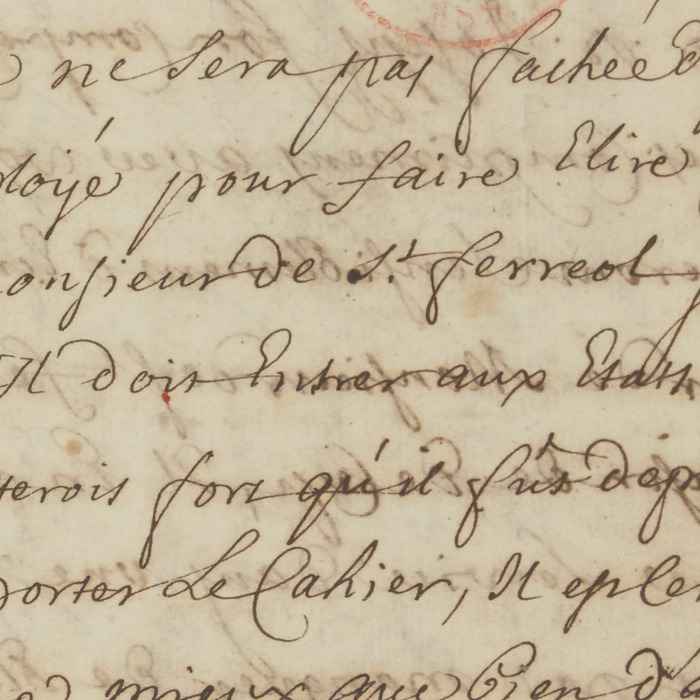 ne sera pas fachée d
loyé pour faire Elire
onsieur de St. ferreol
Il doit Entrer aux Etats
terois fort qu'il fût dep
porter Le Cahier, Il est Le
mieux que bien d'